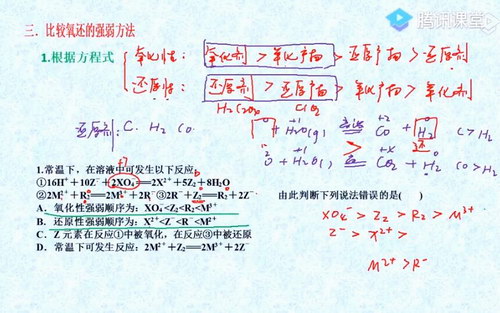 腾讯课堂
三、比较氧还的强弱方法
1.根据方程式
氧化性：氧化剂 > 氧化产物 > 还原产物 > 还原剂
还原性：还原剂 > 还原产物 > 氧化产物 > 氧化剂
还原剂：C. H₂ CO
C + H₂O(g) 高温 CO + H₂ C > H₂
CO + H₂O( ) 高温 CO₂ + H₂ CO > H₂
1.常温下，在溶液中可发生以下反应：
①16H⁺+10Z⁻+2XO₄⁻═2X²⁺+5Z₂+8H₂O
②2M²⁺+R₂═2M³⁺+2R⁻③2R⁻+Z₂═R₂+2Z⁻ 由此判断下列说法错误的是( )
A．氧化性强弱顺序为：XO₄⁻<Z₂<R₂<M³⁺
B．还原性强弱顺序为：X²⁺<Z⁻<R⁻<M²⁺
C．Z 元素在反应①中被氧化，在反应③中被还原
D．常温下可发生反应：2M²⁺+Z₂═2M³⁺+2Z⁻
XO₄⁻ > Z₂ > R₂ > M³⁺
Z⁻ > X²⁺ >
M²⁺ > R⁻